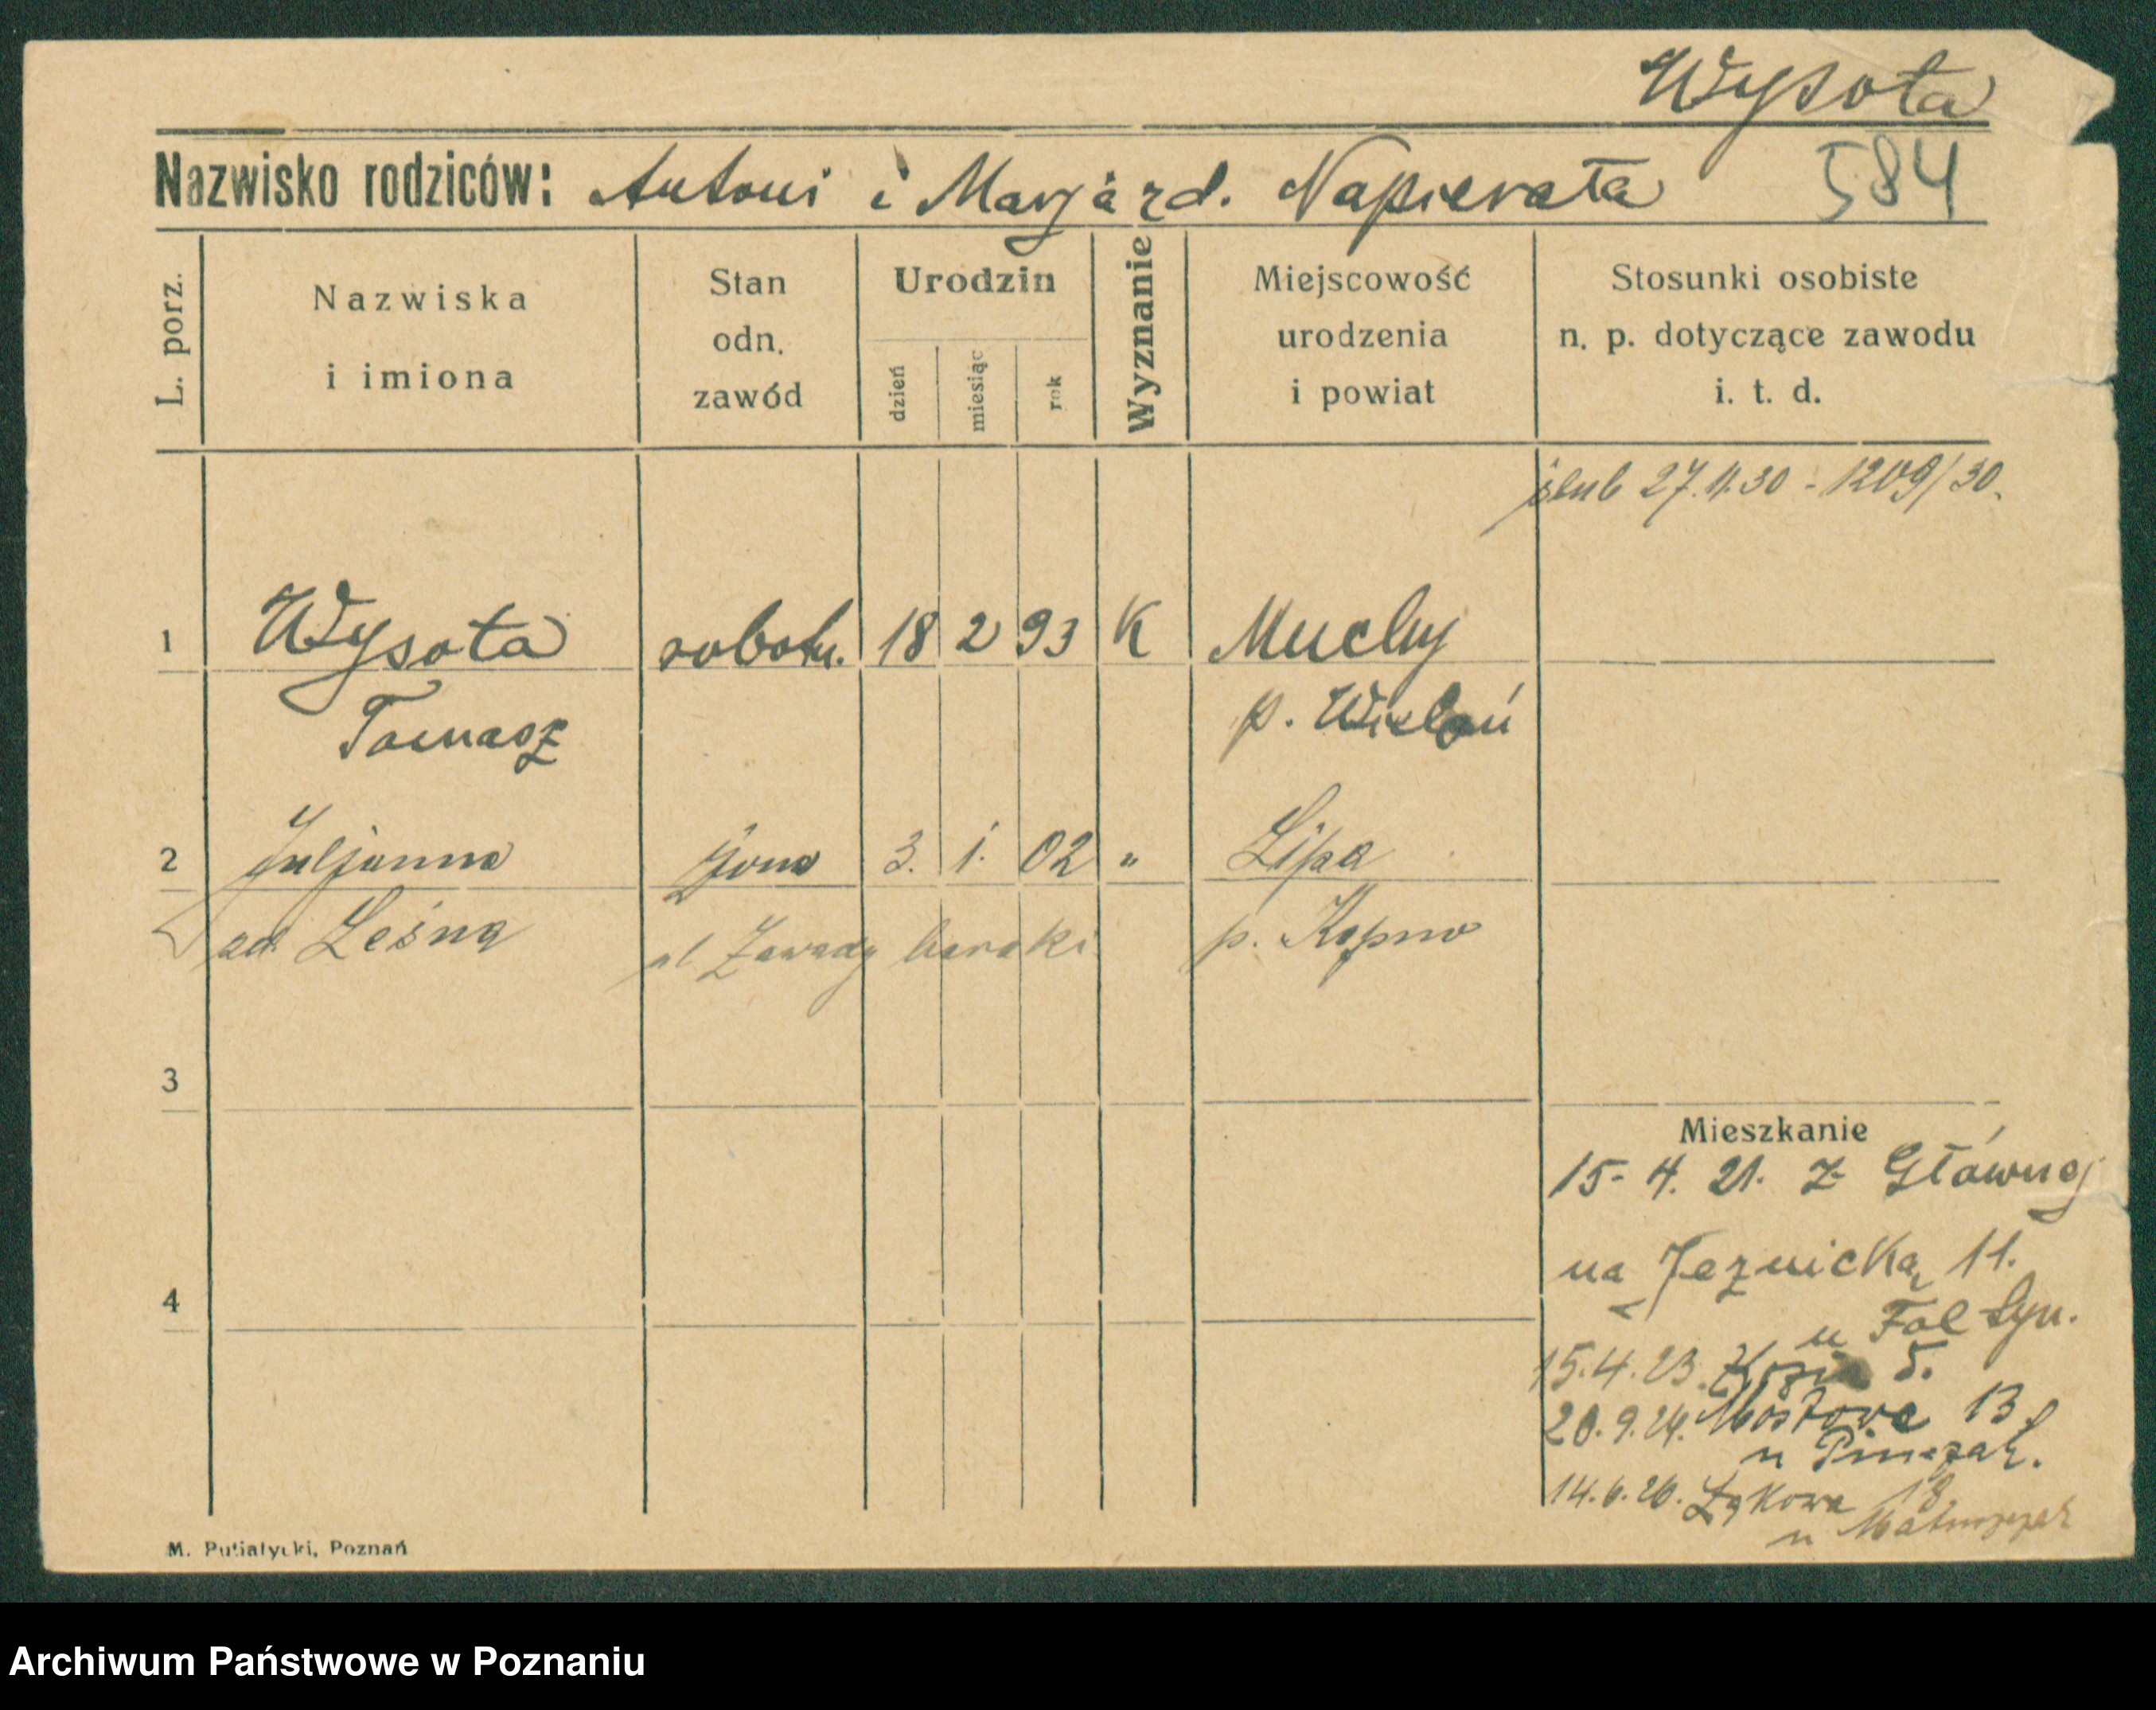 Wysota
Nazwisko rodziców: Antoni i Marja zd. Napierała 584
L. porz.
Nazwiska
i imiona
Stan
odn.
zawód
Urodzin
dzień
miesiąc
rok
Wyznanie
Miejscowość
urodzenia
i powiat
Stosunki osobiste
n. p. dotyczące zawodu
i. t. d.
ślub 27.11.30 - 1209/30.
1 Wysota robotn. 18 2 93 K Muchy
Tomasz p. Wieluń
2 Juljanna żona 3. 1. 02 " Lipa
zd. Leśna ul Zawady baraki p. Kępno
3
Mieszkanie
15- 4. 21. z Głównej
na Jeznicką 11.
4
u Foltyn.
15.4.23. Kozia 5.
20.9.24. Mostowa 13
u
14.6.26. Łąkowa 18
u
M. Putiatycki, Poznań
Archiwum Państwowe w Poznaniu